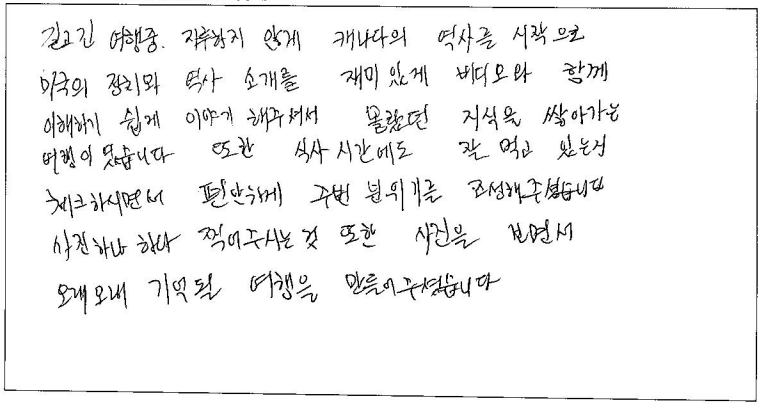 길고긴 여행중. 지루하지 않게 캐나다의 역사를 시작으로
미국의 정치와 역사 소개를 재미있게 비디오와 함께
이해하기 쉽게 이야기 해주셔서 몰랐던 지식을 쌓아가는
여행이 였습니다 또한 식사 시간에도 잘 먹고 있는지
체크하시면서 편안하게 주변 분위기를 조성해주셨습니다
사진하나 하나 찍어주시는 것 또한 사진을 보면서
오래오래 기억될 여행을 만들어주셨습니다